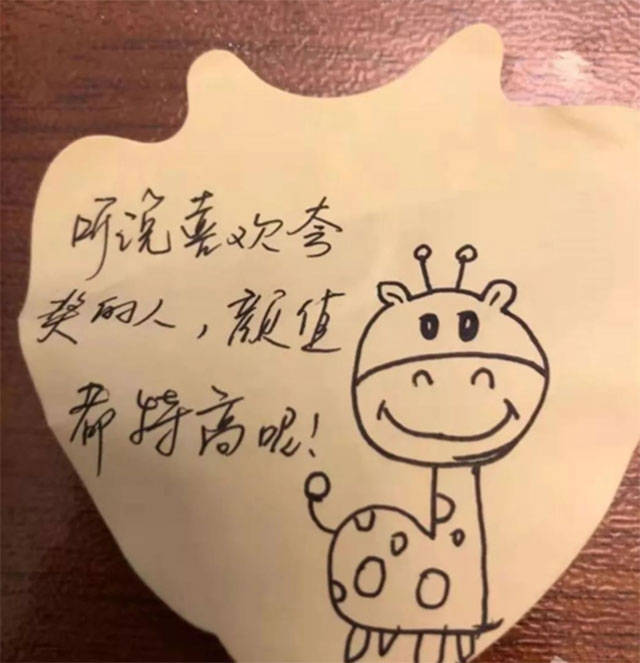 听说喜欢夸
奖的人，颜值
都特高呢！